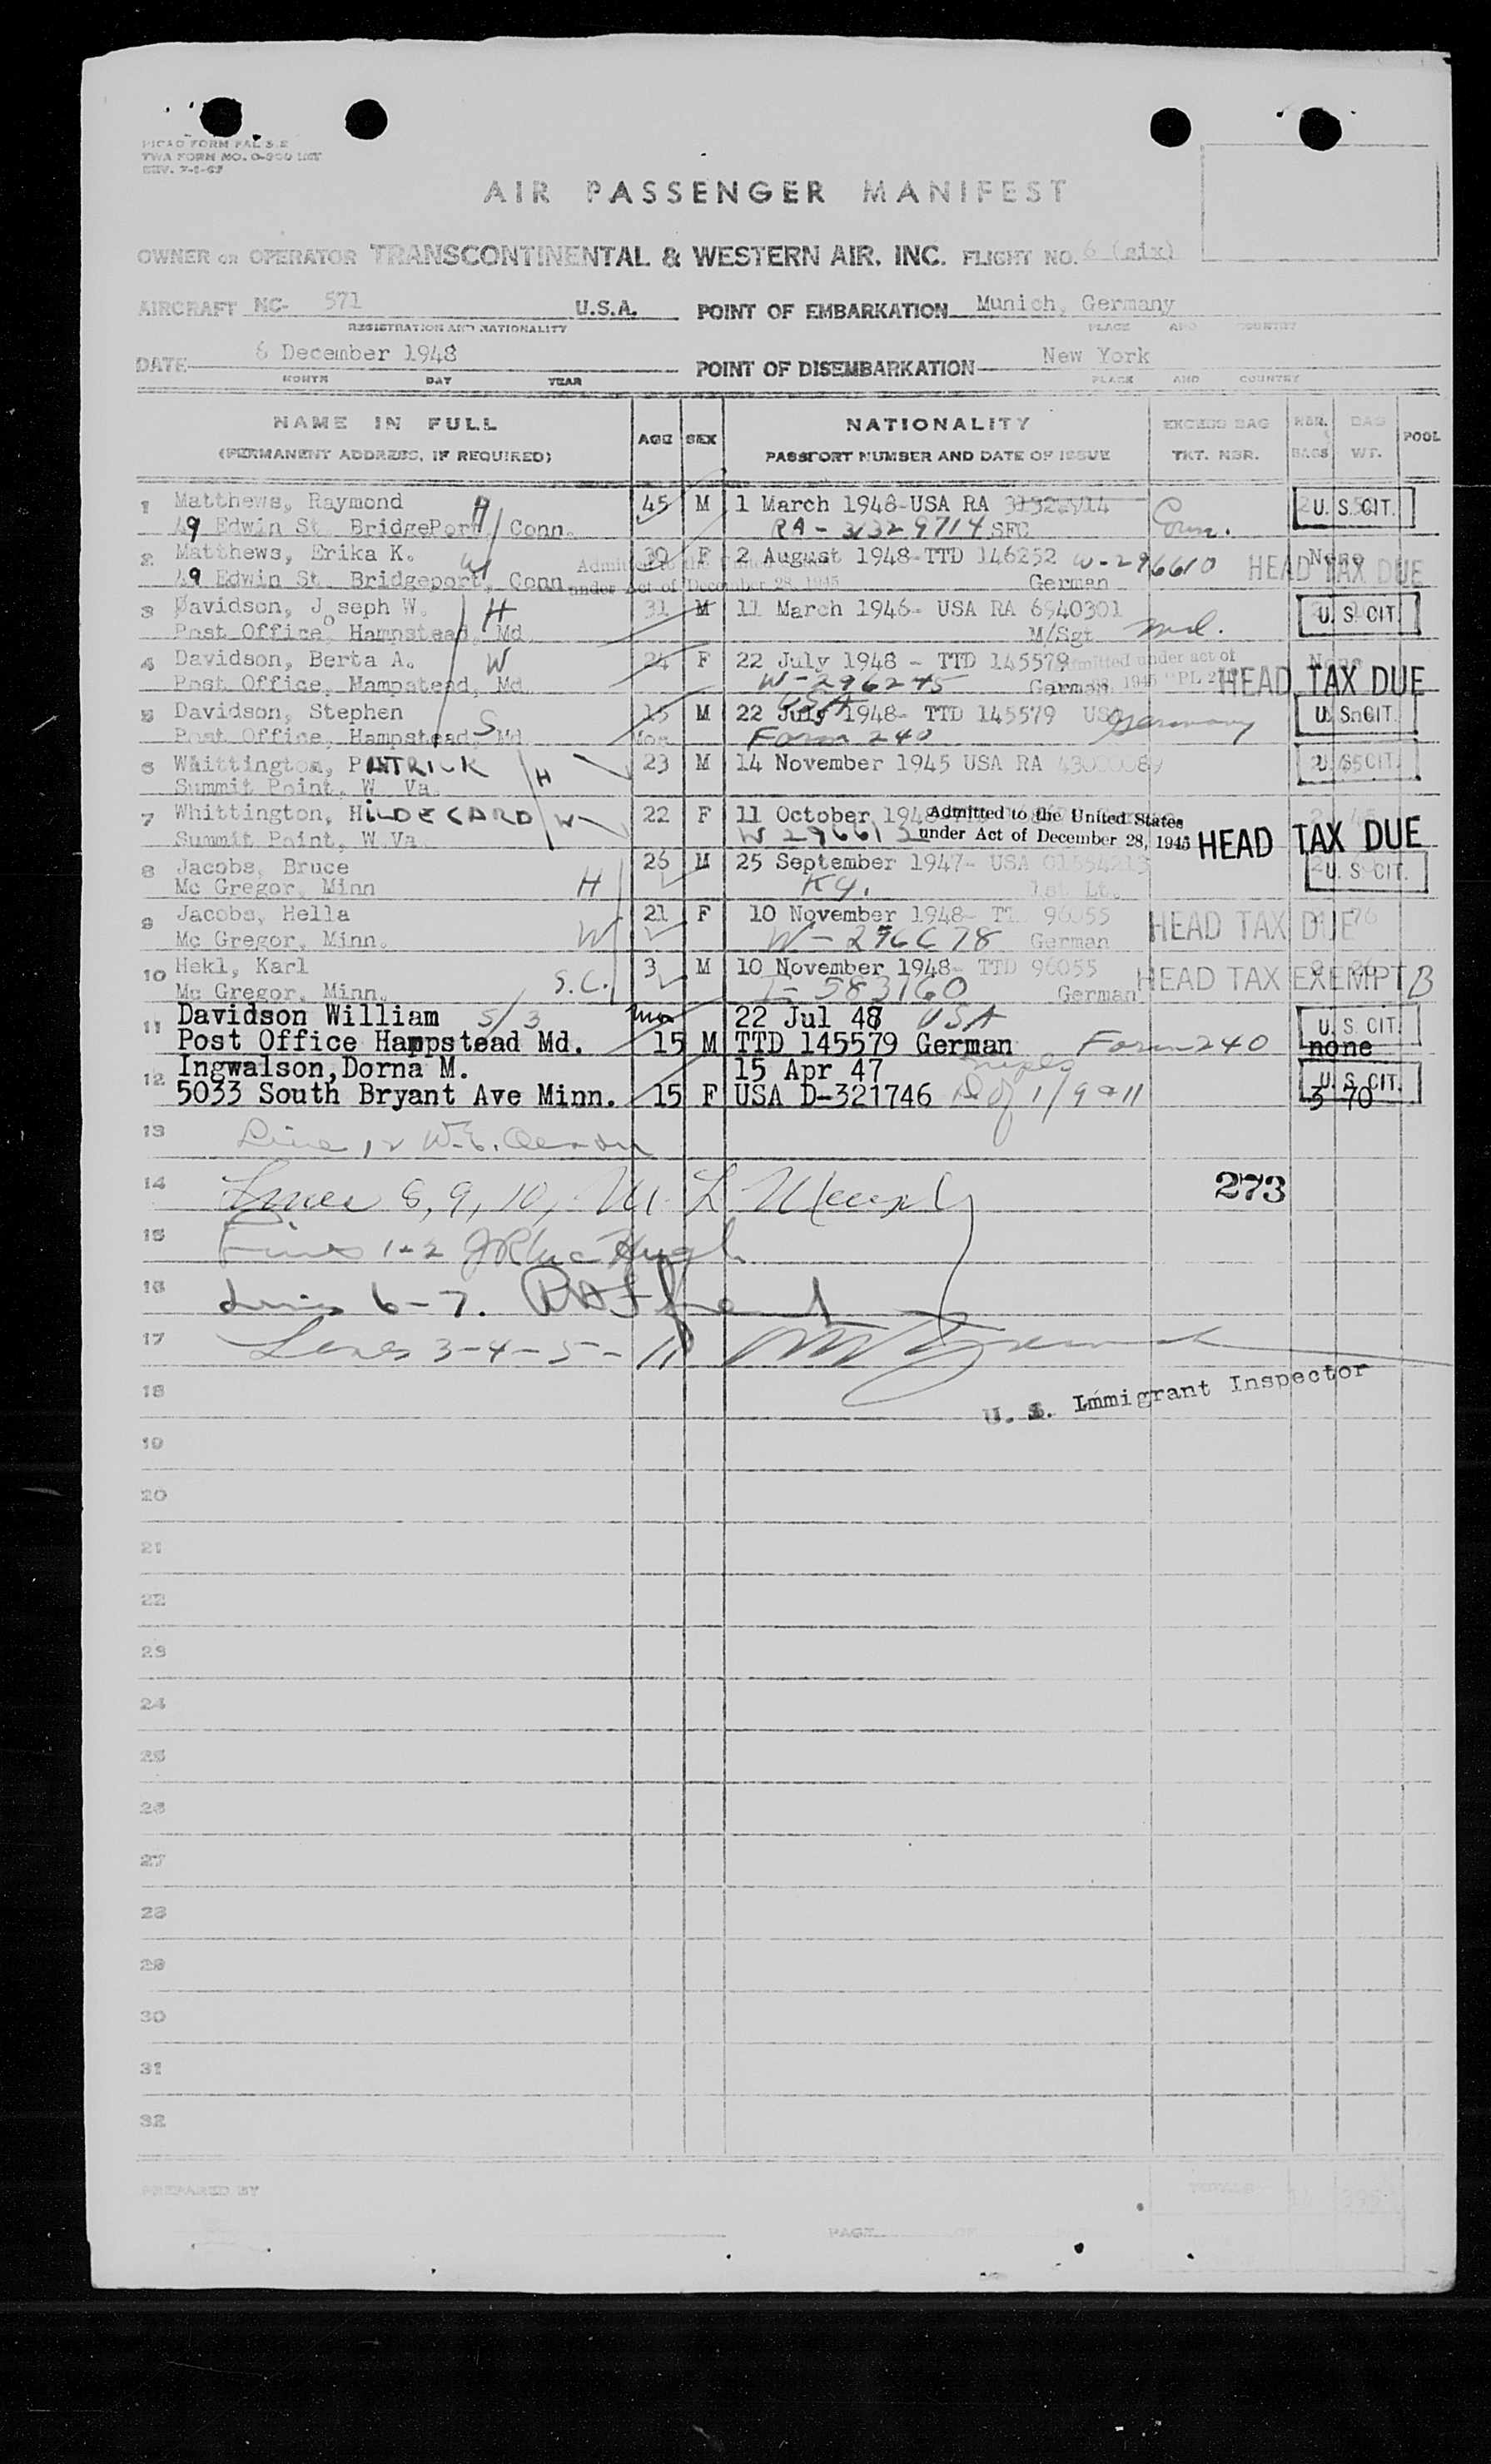 PICAO FORM PAL S.2
TWA FORM NO. O-300 INT
REV. 7-1-47
AIR PASSENGER MANIFEST
OWNER OR OPERATOR TRANSCONTINENTAL & WESTERN AIR, INC. FLIGHT NO. 6 (six)
AIRCRAFT NC- 571 U.S.A. POINT OF EMBARKATION Munich, Germany
REGISTRATION AND NATIONALITY PLACE AND COUNTRY
DATE 6 December 1948 POINT OF DISEMBARKATION New York
MONTH DAY YEAR PLACE AND COUNTRY
NAME IN FULL AGE SEX NATIONALITY EXCESS BAG NBR. BAG POOL
(PERMANENT ADDRESS, IF REQUIRED) PASSPORT NUMBER AND DATE OF ISSUE TKT. NBR. BAGS WT.
1 Matthews, Raymond H 45 M 1 March 1948-USA RA U. S. CIT.
49 Edwin St. BridgePort, Conn. RA - 31329714 SFC Conn.
2 Matthews, Erika K. W 30 F 2 August 1948-TTD 146252 W-296610 None HEAD TAX DUE
49 Edwin St. Bridgeport, Conn German
Admitted to the United States under Act of December 28, 1945
3 Davidson, Joseph W. H 31 M 11 March 1946- USA RA 6940301 U. S. CIT.
Post Office, Hampstead, Md M/Sgt Md.
4 Davidson, Berta A. W 24 F 22 July 1948 - TTD 145579 Admitted under act of None
Post Office, Hampstead, Md W-296245 German 1945 HEAD TAX DUE
5 Davidson, Stephen S 15 M 22 July 1948- TTD 145579 USA Germany U. S. CIT.
Post Office, Hampstead, Md mos Form 240
6 Whittington, PATRICK H 23 M 14 November 1945 USA RA U. S. CIT.
Summit Point, W. Va.
7 Whittington, HILDEGARD W 22 F 11 October 1948 Admitted to the United States
Summit Point, W.Va W 296613 under Act of December 28, 1945 HEAD TAX DUE
8 Jacobs, Bruce 26 M 25 September 1947- USA 01554213 U. S. CIT.
Mc Gregor, Minn H Ky. 1st Lt.
9 Jacobs, Hella 21 F 10 November 1948- TT 96055 HEAD TAX DUE
Mc Gregor, Minn. W W-296678 German
10 Hekl, Karl 3 M 10 November 1948- TTD 96055 HEAD TAX EXEMPT B
Mc Gregor, Minn. S.C. I-583160 German
11 Davidson William S/3 mos 22 Jul 48 USA U. S. CIT.
Post Office Hampstead Md. 15 M TTD 145579 German Form 240 none
12 Ingwalson, Dorna M. 15 Apr 47 U. S. CIT.
5033 South Bryant Ave Minn. 15 F USA D-321746 3 70
13 Line 12
14 Lines 8, 9, 10, 273
15 Lines 1-2
16 Lines 6-7.
17 Lines 3-4-5-11
18 U. S. Immigrant Inspector
19
20
21
22
23
24
25
26
27
28
29
30
31
32
PREPARED BY TOTALS
PAGE OF